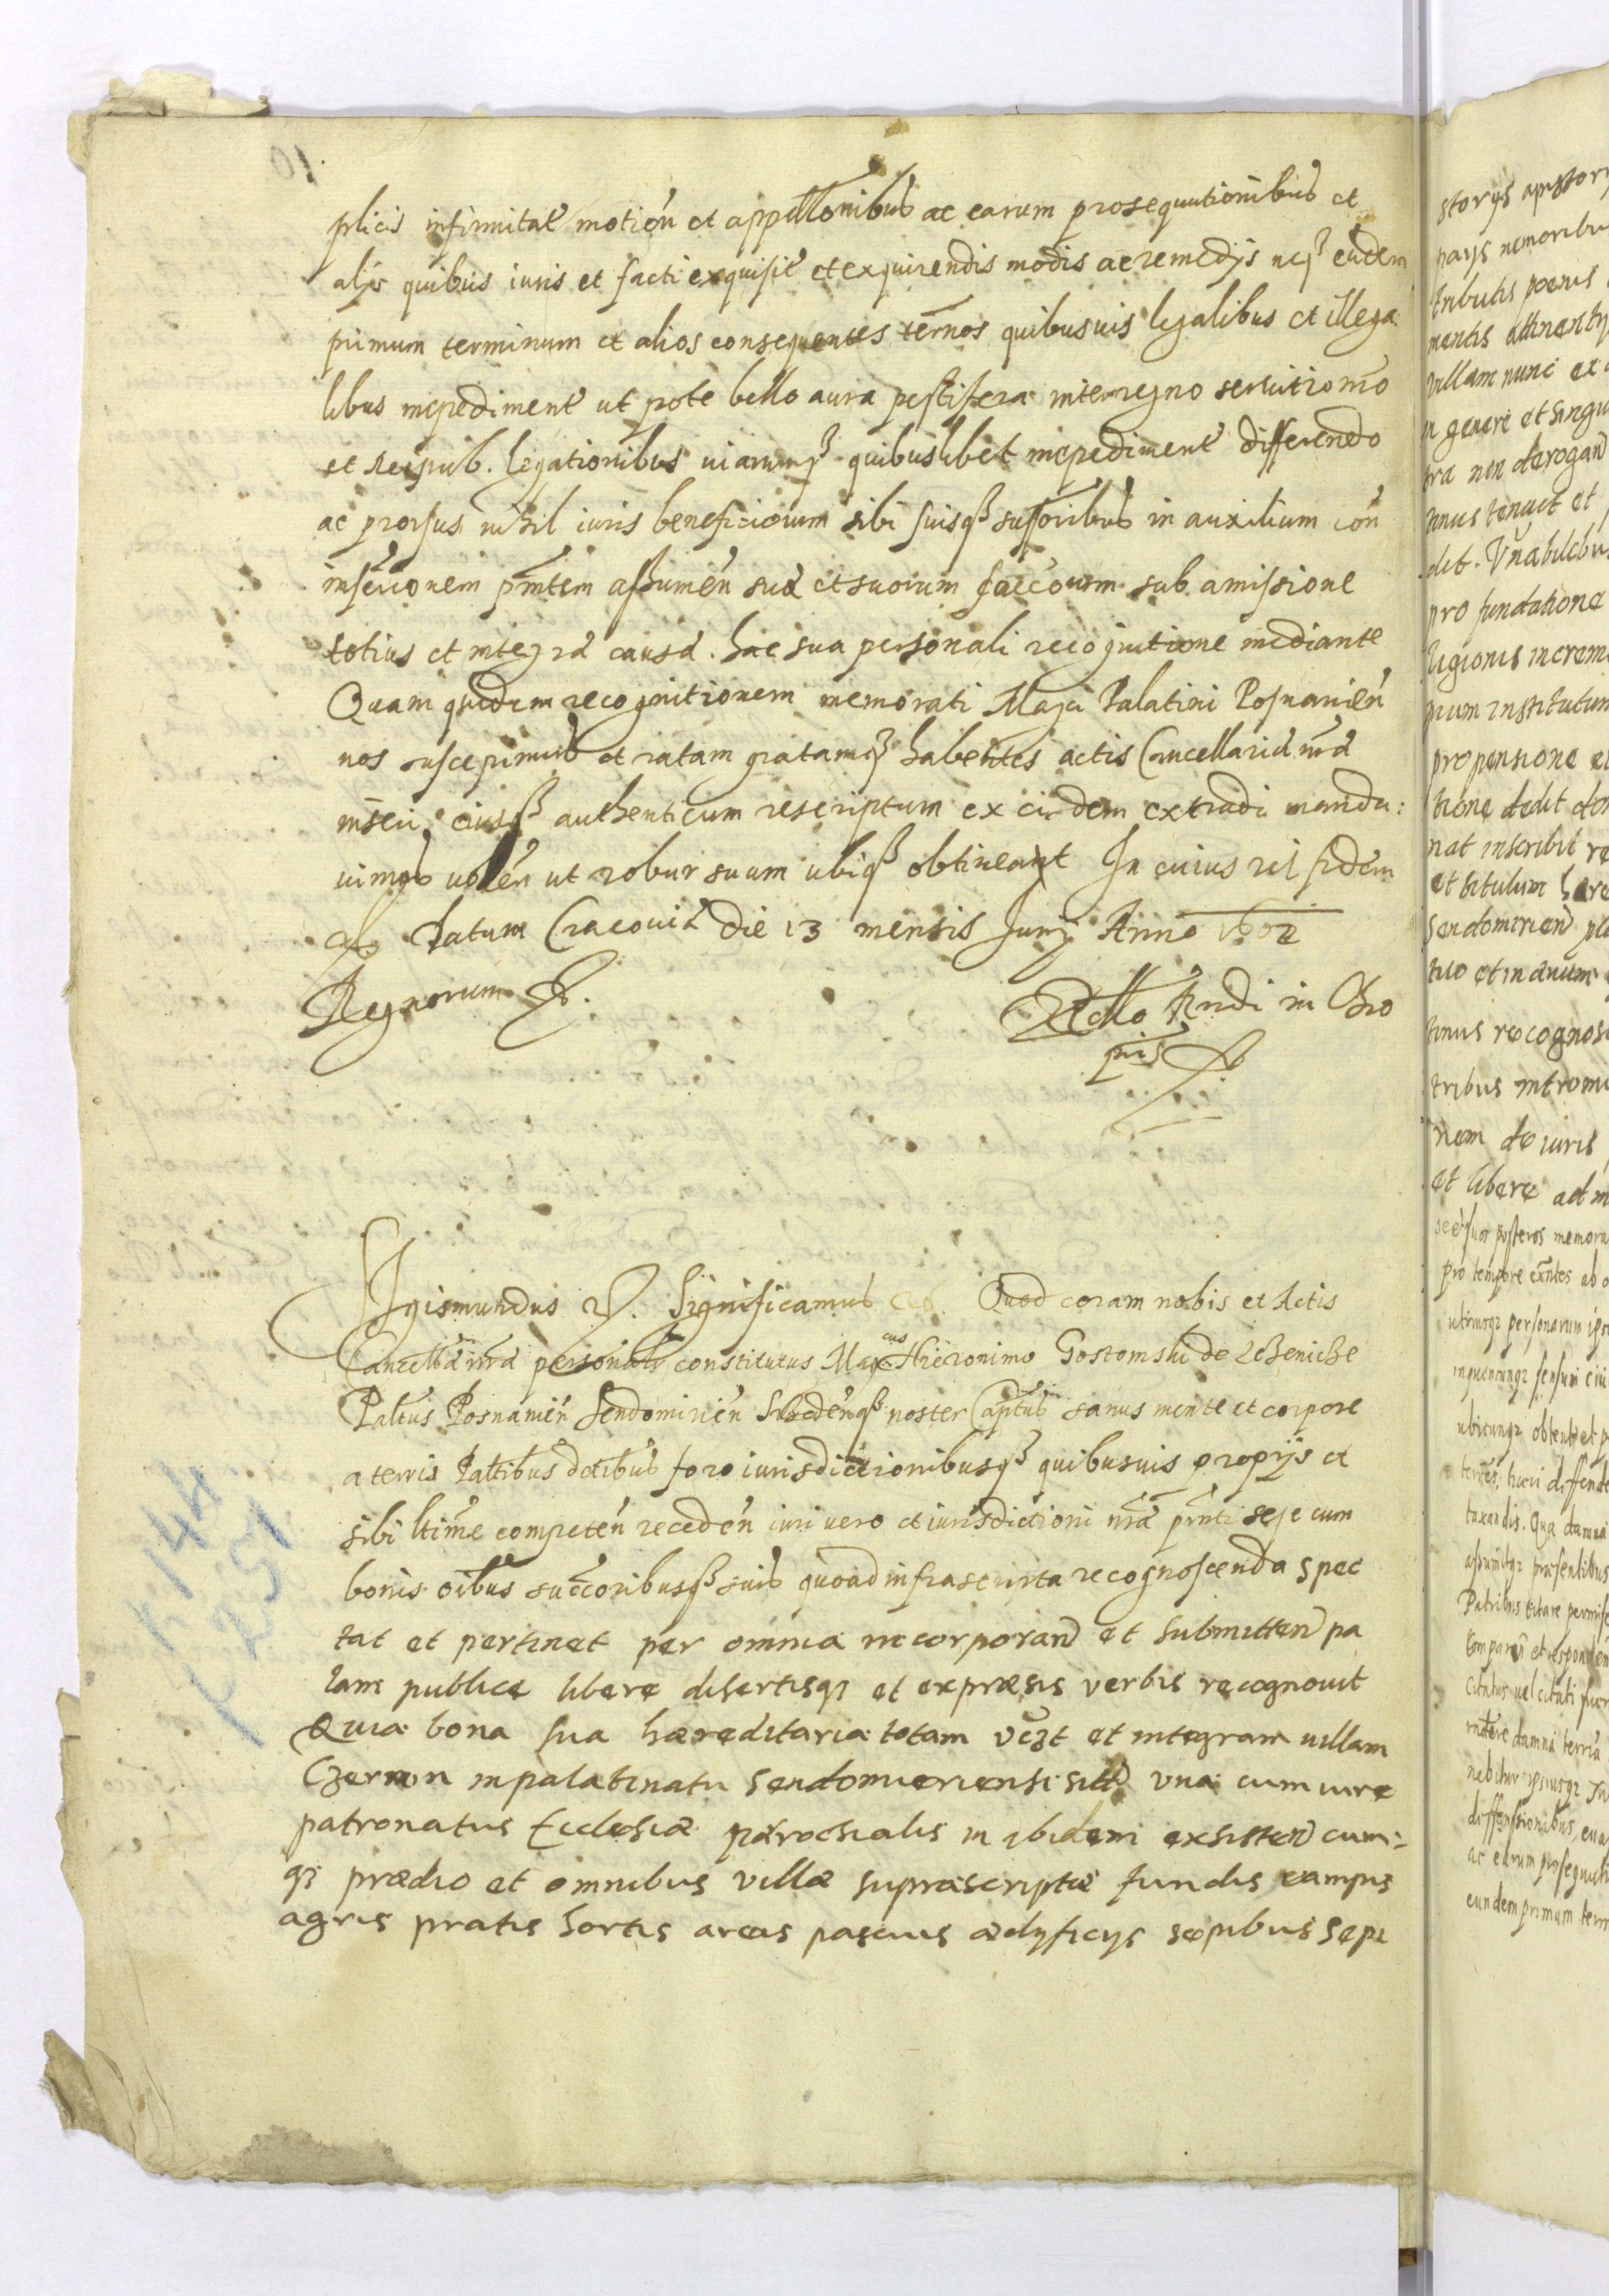 plicis infirmitat motion et appellonibus ac earum prosequutionibus et
alijs quibus iuris et facti exquisit et exquirendis modis ac remedijs neq eundem
primum terminum et alios consequentes termos quibusuis legalibus et illega
libus impediment ut pote bello aura pestifera interregno seruitio nro
et Reipub. legationibus uiarumq quibuslibet impediment differendo
ac prorsus nihil iuris beneficiorum sibi suisq sussoribus in auxilium con
inscrionem pntem assumen sua et suorum succorum sub amissione
totius et integra causa. hac sua personali recognitione mediante
Quam quidem recognitionem memorati Magci Palatini Posnanien
nos suscepimus et ratam gratamq habentes actis Cancellaria nra
inseri, eiusq authenticum rescriptum ex eisdem extradi manda:
uimus uolen ut robur suum ubiq obtineant In cuius rei fidem
Datum Cracouia die 13 mensis Junij Anno 1602
Regnorum
Rello Rndi in Chro
pris
Sigismundus Significamus Quod coram nobis et Actis
Cancella nra personalr constitutus Magcus Hieronimo Gostomski de
Paltus Posnanien Sendomirien noster Captus sanus mente et corpore
a terris Paltibus dctibus foro iurisdictionibusq quibusuis proprijs et
sibi ltime competen receden iuri uero et iurisdictioni nra pnti sese cum
bonis oibus succoribusq suis quoad infrascripta recognoscenda spec
tat et pertinet per omnia incorporan et submitten pa
lam publice libere disertisq et expræsis verbis recognouit
Quia bona sua hæreditaria totam vezt et integram uillam
Czermin in palatinatu Sendomieriensi sitt vna cum iure
patronatus Ecclesiæ parochialis in ibidem exsisten cum:
q prædio et omnibus villæ suprascriptæ fundis campis
agris pratis hortis areis pascuis ædyficijs sepibus Sepi
storijs apustorijs
pays nemoribu
tributis poenis
mentis attinentijs
uillam nunc et
in genere et singu
tra non derogan
tinus tenuit et
det. Vnabilibus
pro fundatione
ligionis increm
pium institutum
propensione et
tione dedit do
nat inscribit re
et titulum hære
Sendomirien pl
tuo et in æuum
tinus recognosc
tribus intromi
nem de iuris
et libere adm
se et suos posteros memora
pro tempore exntes ab o
utriusq personarum ipso
inquencunq sensum eiu
ubicunq obtent et p
tentes, tueri diffende
taxandis. Qua damna
assumitq præsentibus
Patribus citare permis
comparen et responden
Citatus uel citati fuer
mdere damna terris
nebitur ipsiusq Su
diffensionibus, eua
ac earum prosequuti
eundem primum term